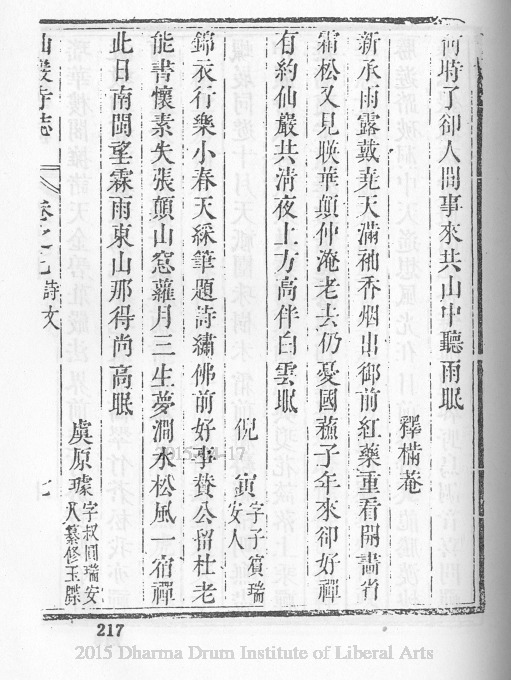 何時了卻人間事來共山中聽雨眠
釋橫菴
新承雨露戴堯天滿袖香烟出御前紅藥重看開畵省
霜松又見映華顛仲淹老去仍憂國蘓子年來卻好禪
有約仙巖共清夜上方高伴白雲眠
倪寅字子賓瑞安人
錦衣行樂小春天綵筆題詩繡佛前好事贊公留杜老
能書懷素失張顛山窓蘿月三生夢澗水松風一宿禪
此日南閩望霖雨東山那得尚高眠
虞原璩字叔圓瑞安人纂修玉牒
仙巖寺志 卷之七 詩文 七
2015-04-17
217
2015 Dharma Drum Institute of Liberal Arts